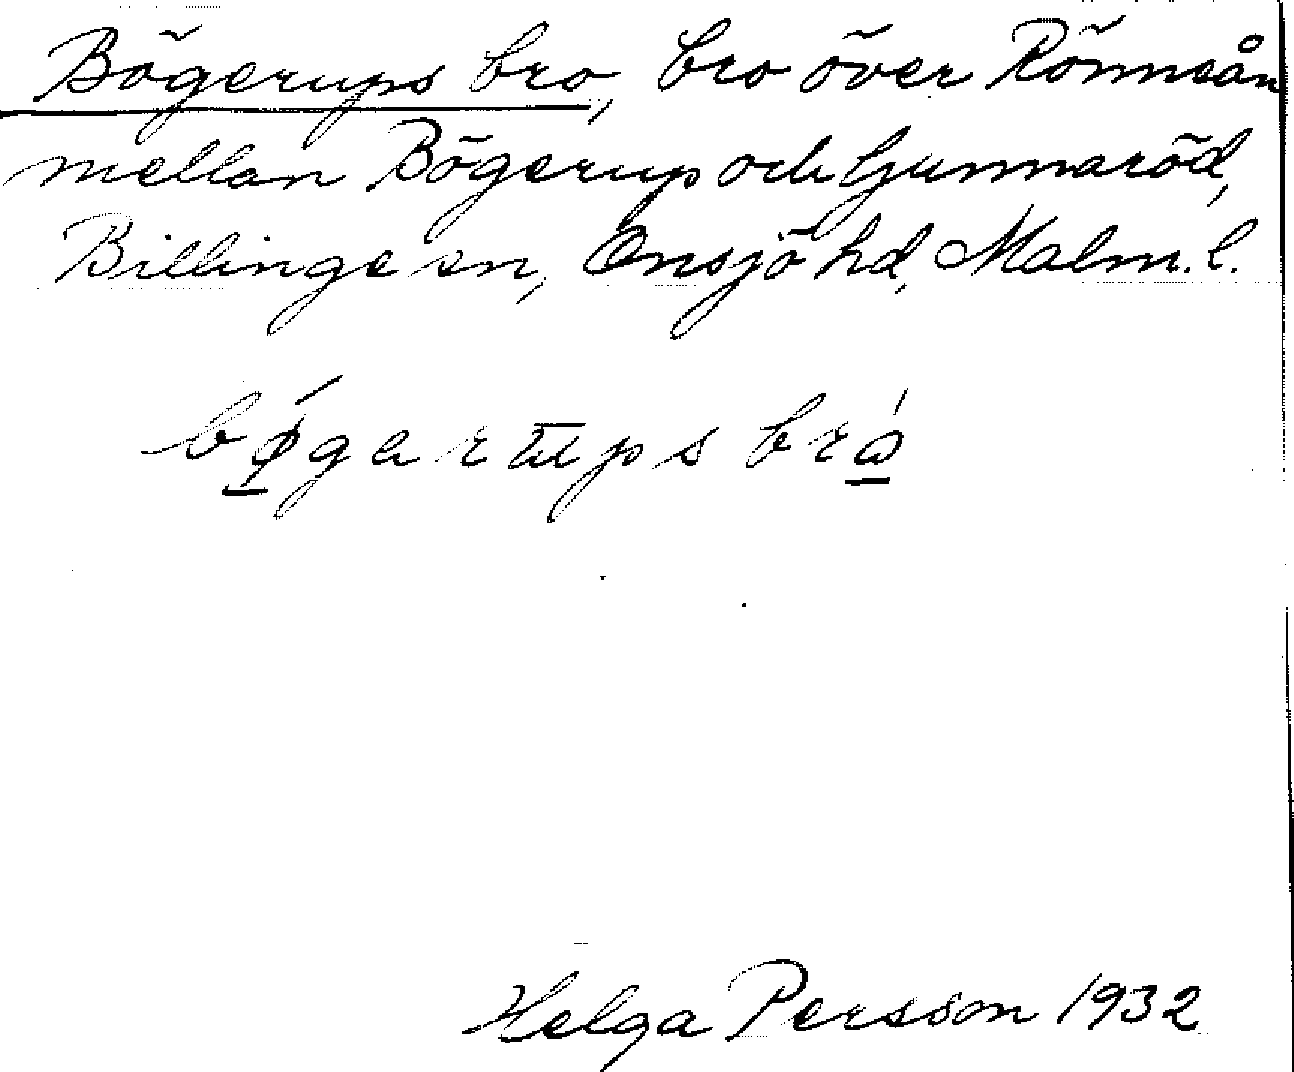 Bögerups bro, bro över Rönneån
mellan Bögerup och Gunnaröd,
Billinge sn, Onsjö hd, Malm. l.
bǿ̲garūps brǻ̲
Helga Persson 1932